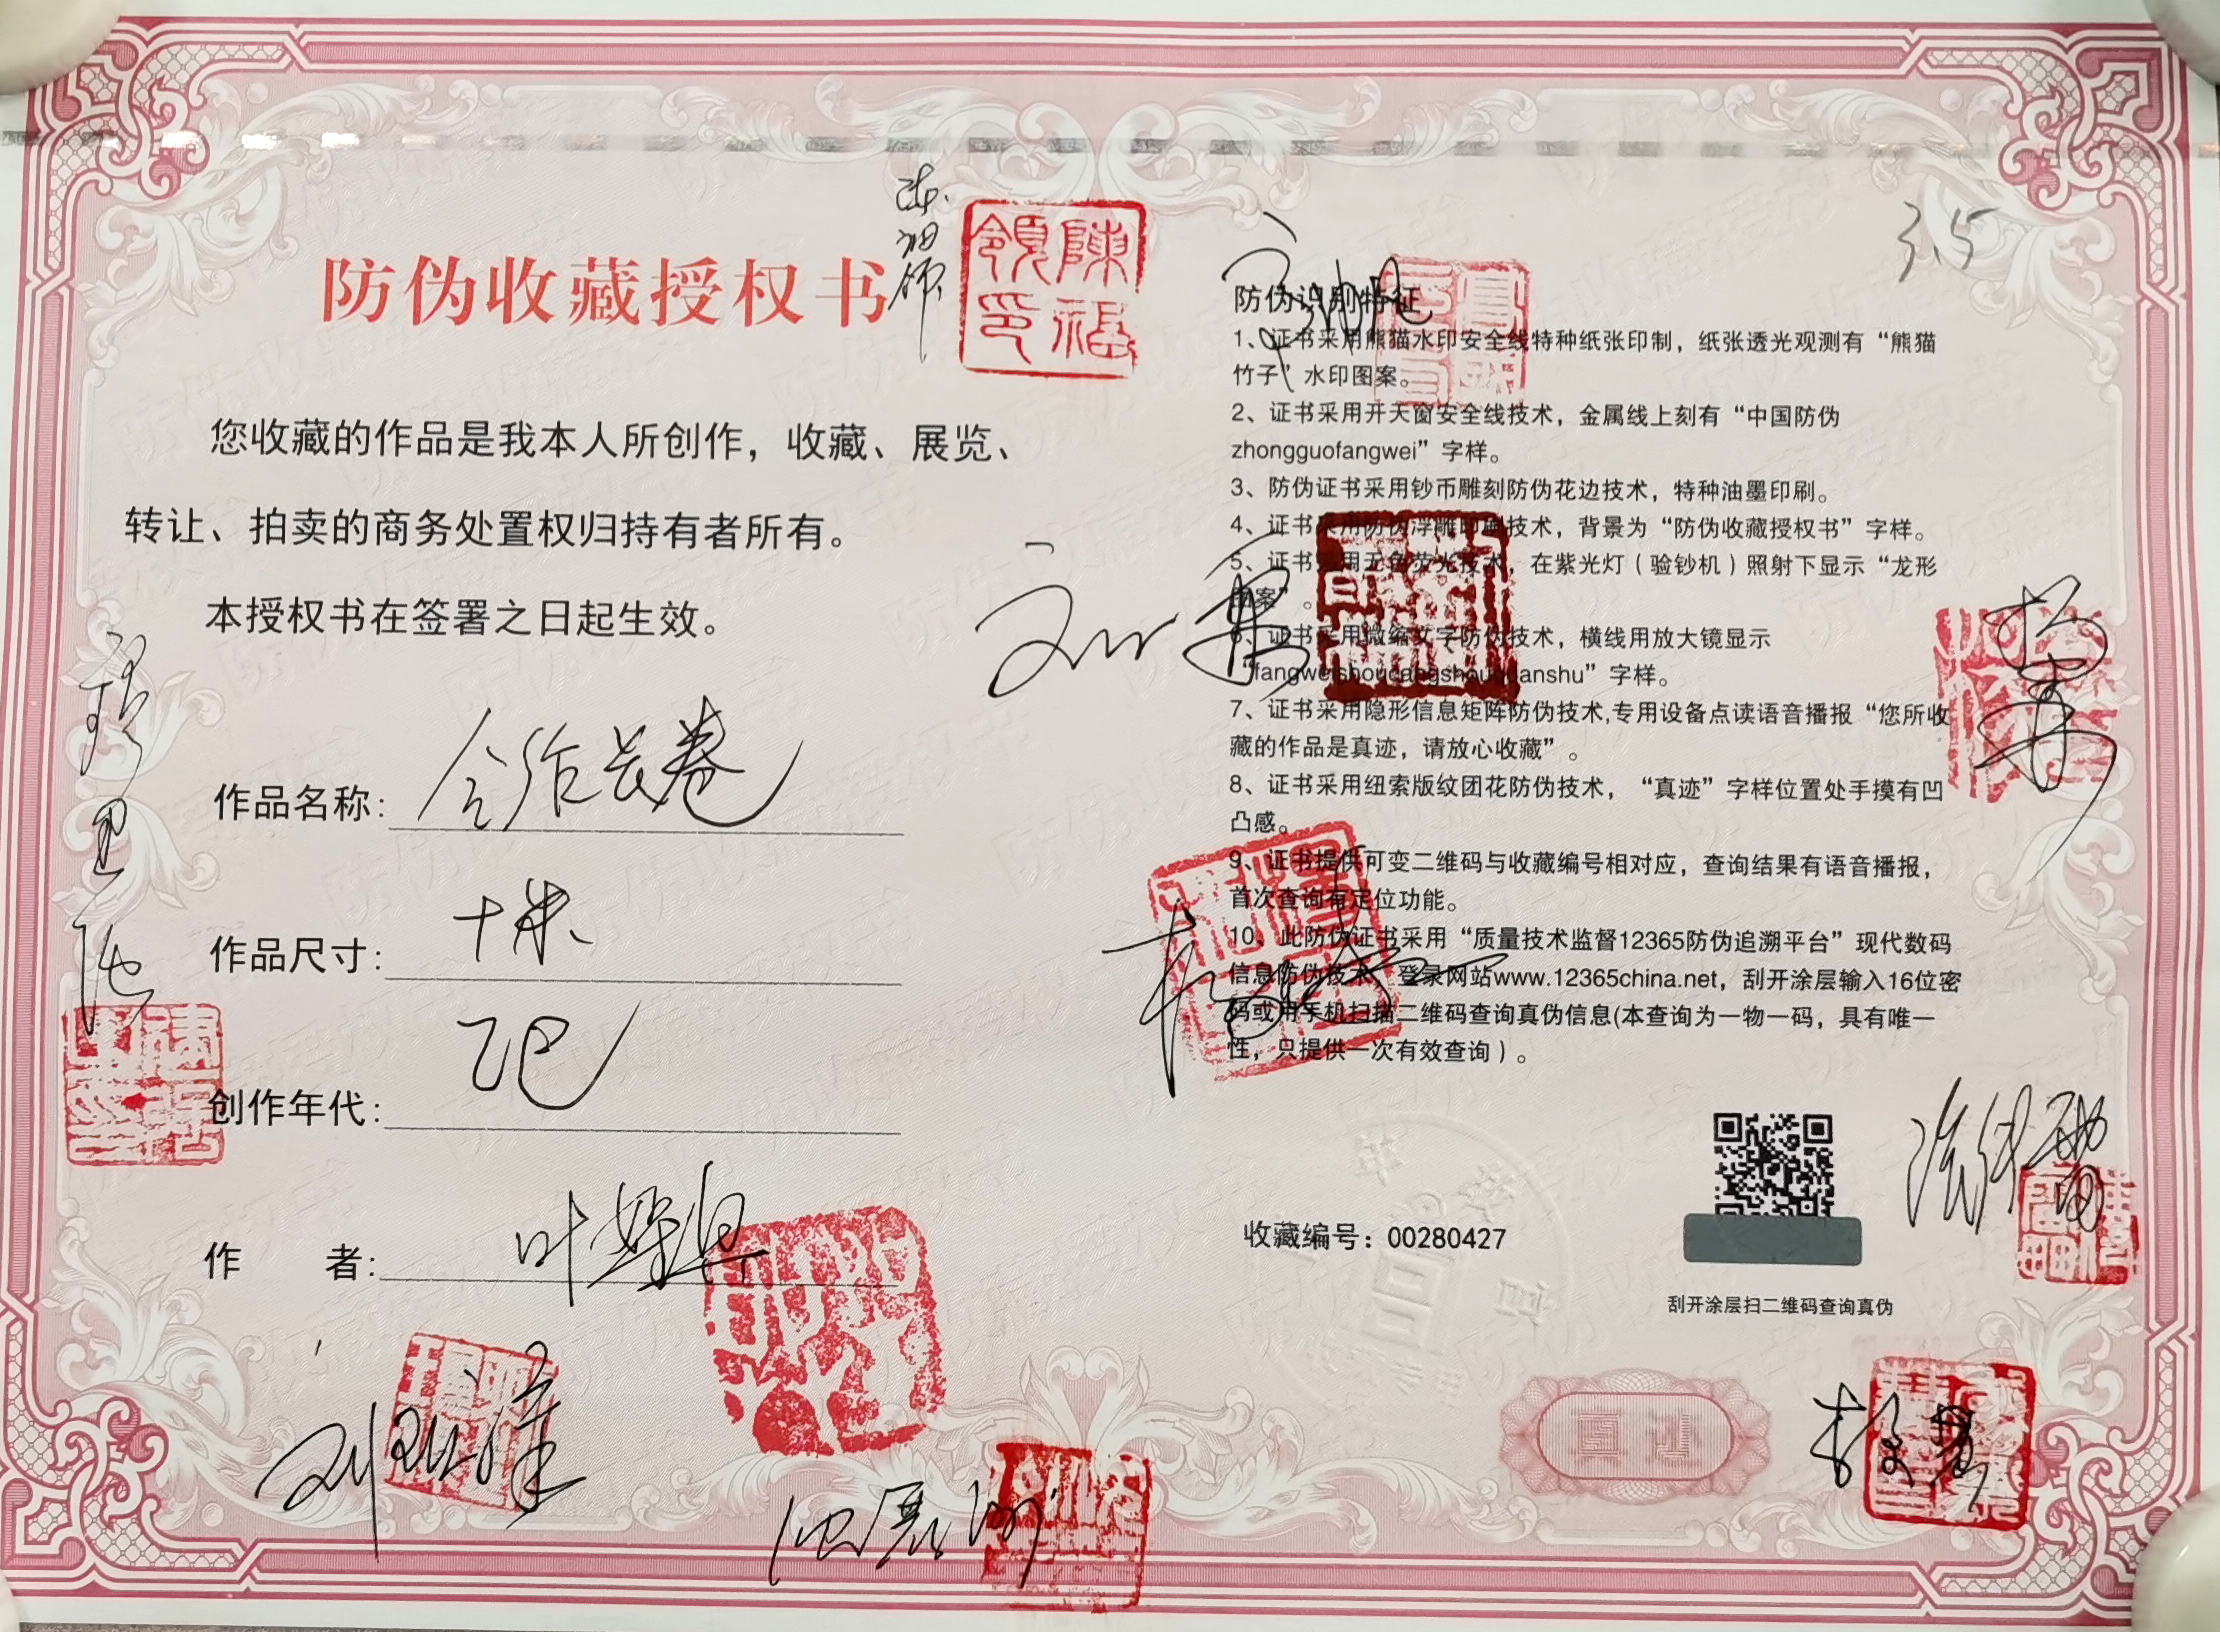 防伪收藏授权书
陳福領印
3.5
您收藏的作品是我本人所创作，收藏、展览、
转让、拍卖的商务处置权归持有者所有。
本授权书在签署之日起生效。
作品名称: 合作长卷
作品尺寸: 十米
创作年代: 乙巳
作 者:
防伪识别特征
1、证书采用熊猫水印安全线特种纸张印制，纸张透光观测有“熊猫
竹子”水印图案。
2、证书采用开天窗安全线技术，金属线上刻有“中国防伪
zhongguofangwei”字样。
3、防伪证书采用钞币雕刻防伪花边技术，特种油墨印刷。
4、证书采用防伪浮雕印刷技术，背景为“防伪收藏授权书”字样。
5、证书采用无色荧光技术，在紫光灯（验钞机）照射下显示“龙形
图案”。
6、证书采用微缩文字防伪技术，横线用放大镜显示
“fangweishoucangshouquanshu”字样。
7、证书采用隐形信息矩阵防伪技术,专用设备点读语音播报“您所收
藏的作品是真迹，请放心收藏”。
8、证书采用纽索版纹团花防伪技术，“真迹”字样位置处手摸有凹
凸感。
9、证书提供可变二维码与收藏编号相对应，查询结果有语音播报，
首次查询有定位功能。
10、此防伪证书采用“质量技术监督12365防伪追溯平台”现代数码
信息防伪技术，登录网站www.12365china.net，刮开涂层输入16位密
码或用手机扫描二维码查询真伪信息(本查询为一物一码，具有唯一
性，只提供一次有效查询）。
收藏编号：00280427
刮开涂层扫二维码查询真伪
真迹